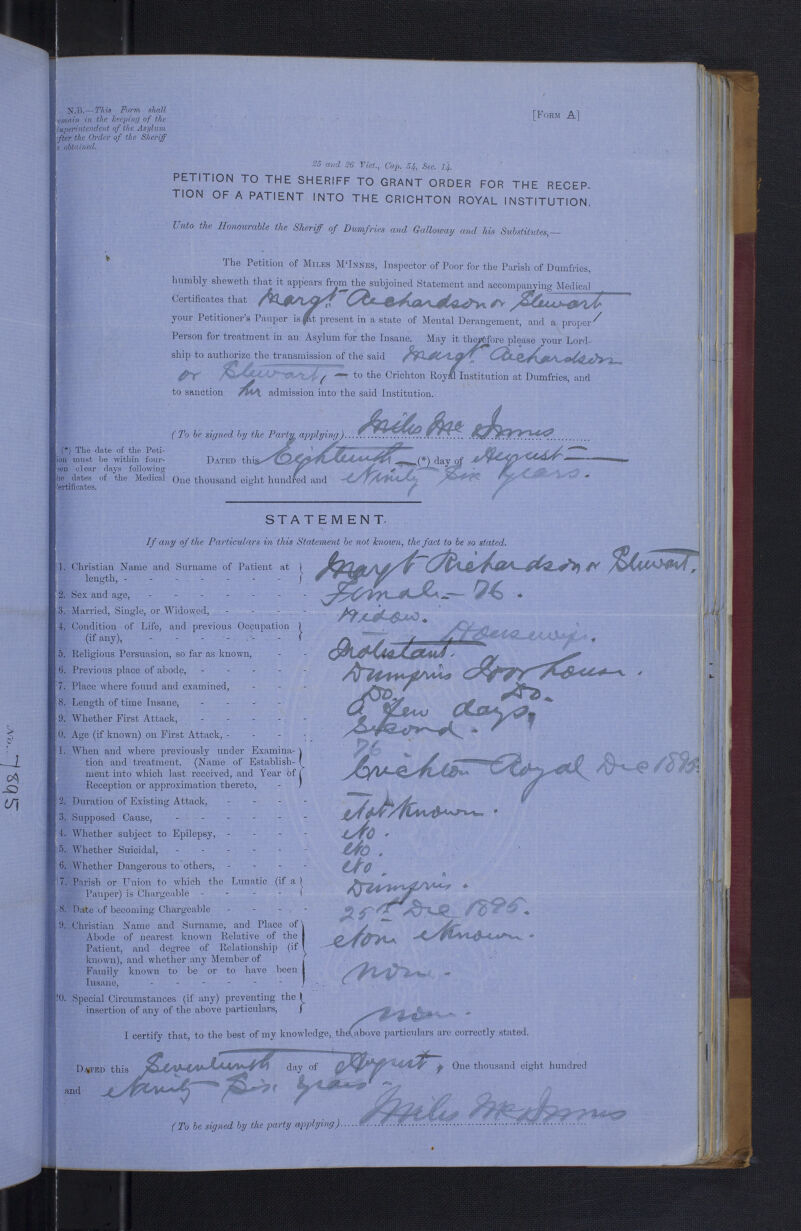 N.B.—This Form shall
remain in the keeping of the
Superintendent of the Asylum
after the Order of the Sheriff
is obtained.
[FORM A]
25 and 26 Vict., Cap. 54, Sec. 14.
PETITION TO THE SHERIFF TO GRANT ORDER FOR THE RECEP-
TION OF A PATIENT INTO THE CRICHTON ROYAL INSTITUTION.
Unto the Honourable the Sheriff of Dumfries and Galloway and his Substitutes,—
The Petition of MILES M'INNES, Inspector of Poor for the Parish of Dumfries,
humbly sheweth that it appears from the subjoined Statement and accompanying Medical
Certificates that Margt Richardson or Stewart
your Petitioner's Pauper is at present in a state of Mental Derangement, and a proper
Person for treatment in an Asylum for the Insane. May it therefore please your Lord-
ship to authorize the transmission of the said Margt Richardson
or Stewart, — to the Crichton Royal Institution at Dumfries, and
to sanction her admission into the said Institution.
(To be signed by the Party applying) Miles McInnes
(*) The date of the Peti-
tion must be within four-
teen clear days following
the dates of the Medical
Certificates.
DATED this Eighteenth — (*) day of August —
One thousand eight hundred and Ninety Six years.
STATEMENT.
If any of the Particulars in this Statement be not known, the fact to be so stated.
1. Christian Name and Surname of Patient at
length, - Margt Richardson or Stewart.
2. Sex and age, - Female — 76.
3. Married, Single, or Widowed, - Widow.
4. Condition of Life, and previous Occupation
(if any), - Housewife.
5. Religious Persuasion, so far as known, - Protestant.
6. Previous place of abode, - Dumfries Poorhouse.
7. Place where found and examined, - Do. Do.
8. Length of time Insane, - A few days.
9. Whether First Attack, - Second.
10. Age (if known) on First Attack, - 76
11. When and where previously under Examina-
tion and treatment. (Name of Establish-
ment into which last received, and Year of
Reception or approximation thereto, - Crichton Royal Dec 1895.
12. Duration of Existing Attack, - Not Known.
13. Supposed Cause,
14. Whether subject to Epilepsy, - No.
15. Whether Suicidal, - No.
16. Whether Dangerous to others, - No
17. Parish or Union to which the Lunatic (if a
Pauper) is Chargeable - Dumfries.
18. Date of becoming Chargeable - 25th Dec 1895.
19. Christian Name and Surname, and Place of
Abode of nearest known Relative of the
Patient, and degree of Relationship (if
known), and whether any Member of
Family known to be or to have been
Insane, - None Known.
None.
20. Special Circumstances (if any) preventing the
insertion of any of the above particulars, None.
I certify that, to the best of my knowledge, the above particulars are correctly stated.
DATED this Seventeenth day of August, One thousand eight hundred
and Ninety Six years
(To be signed by the party applying) Miles McInnes
No. 7895